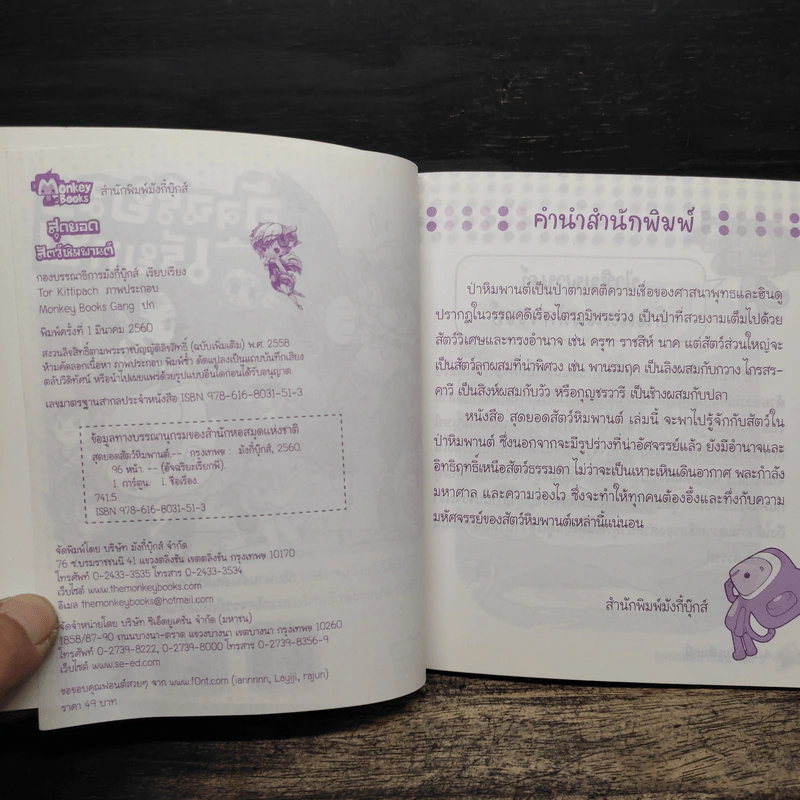 Monkey Books สำนักพิมพ์มังกี้บุ๊กส์
สุดยอด
สัตว์หิมพานต์
กองบรรณาธิการมังกี้บุ๊กส์ เรียบเรียง
Tor Kittipach ภาพประกอบ
Monkey Books Gang ปก
พิมพ์ครั้งที่ 1 มีนาคม 2560
สงวนลิขสิทธิ์ตามพระราชบัญญัติลิขสิทธิ์ (ฉบับเพิ่มเติม) พ.ศ. 2558
ห้ามคัดลอกเนื้อหา ภาพประกอบ พิมพ์ซ้ำ ดัดแปลงเป็นแถบบันทึกเสียง
ตลับวีดิทัศน์ หรือนำไปเผยแพร่ด้วยรูปแบบอื่นใดก่อนได้รับอนุญาต
เลขมาตรฐานสากลประจำหนังสือ ISBN 978-616-8031-51-3
ข้อมูลทางบรรณานุกรมของสำนักหอสมุดแห่งชาติ
สุดยอดสัตว์หิมพานต์.-- กรุงเทพฯ : มังกี้บุ๊กส์, 2560.
96 หน้า. -- (อัจฉริยะเรียกพี่).
1. การ์ตูน. I. ชื่อเรื่อง.
741.5
ISBN 978-616-8031-51-3
จัดพิมพ์โดย บริษัท มังกี้บุ๊กส์ จำกัด
76 ซ.บรมราชชนนี 41 แขวงตลิ่งชัน เขตตลิ่งชัน กรุงเทพฯ 10170
โทรศัพท์ 0-2433-3535 โทรสาร 0-2433-3534
เว็บไซต์ www.themonkeybooks.com
อีเมล themonkeybooks@hotmail.com
จัดจำหน่ายโดย บริษัท ซีเอ็ดยูเคชั่น จำกัด (มหาชน)
1858/87-90 ถนนบางนา-ตราด แขวงบางนา เขตบางนา กรุงเทพฯ 10260
โทรศัพท์ 0-2739-8222, 0-2739-8000 โทรสาร 0-2739-8356-9
เว็บไซต์ www.se-ed.com
ขอขอบคุณฟอนต์สวยๆ จาก www.f0nt.com (iannnnn, Layiji, rajun)
ราคา 49 บาท
คำนำสำนักพิมพ์
ป่าหิมพานต์เป็นป่าตามคติความเชื่อของศาสนาพุทธและฮินดู
ปรากฏในวรรณคดีเรื่องไตรภูมิพระร่วง เป็นป่าที่สวยงามเต็มไปด้วย
สัตว์วิเศษและทรงอำนาจ เช่น ครุฑ ราชสีห์ นาค แต่สัตว์ส่วนใหญ่จะ
เป็นสัตว์ลูกผสมที่น่าพิศวง เช่น พานรมฤค เป็นลิงผสมกับกวาง ไกรสร-
คาวี เป็นสิงห์ผสมกับวัว หรือกุญชรวารี เป็นช้างผสมกับปลา
หนังสือ สุดยอดสัตว์หิมพานต์ เล่มนี้ จะพาไปรู้จักกับสัตว์ใน
ป่าหิมพานต์ ซึ่งนอกจากจะมีรูปร่างที่น่าอัศจรรย์แล้ว ยังมีอำนาจและ
อิทธิฤทธิ์เหนือสัตว์ธรรมดา ไม่ว่าจะเป็นเหาะเหินเดินอากาศ พละกำลัง
มหาศาล และความว่องไว ซึ่งจะทำให้ทุกคนต้องอึ้งและทึ่งกับความ
มหัศจรรย์ของสัตว์หิมพานต์เหล่านี้แน่นอน
สำนักพิมพ์มังกี้บุ๊กส์